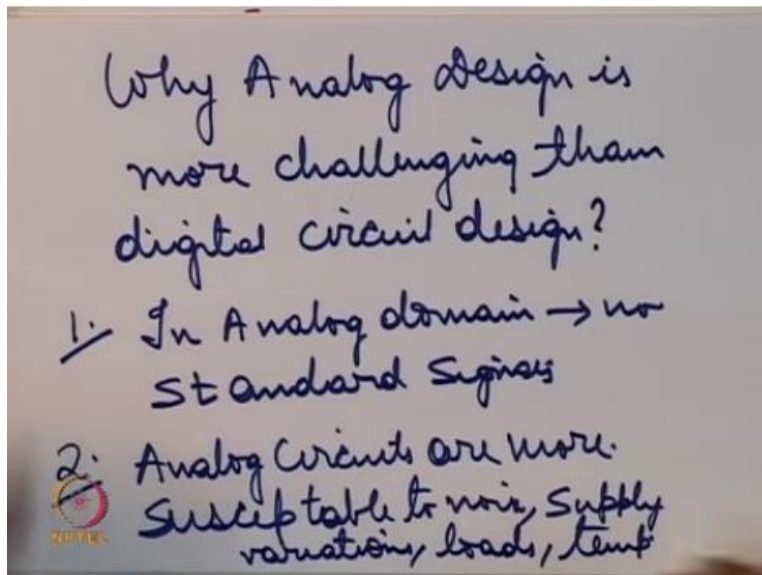 Why Analog Design is
more challenging than
digital circuit design?
1. In Analog domain → no
Standard Signals
2. Analog Circuits are more.
Susceptable to noise, Supply
variations, loads, temp
NPTEL